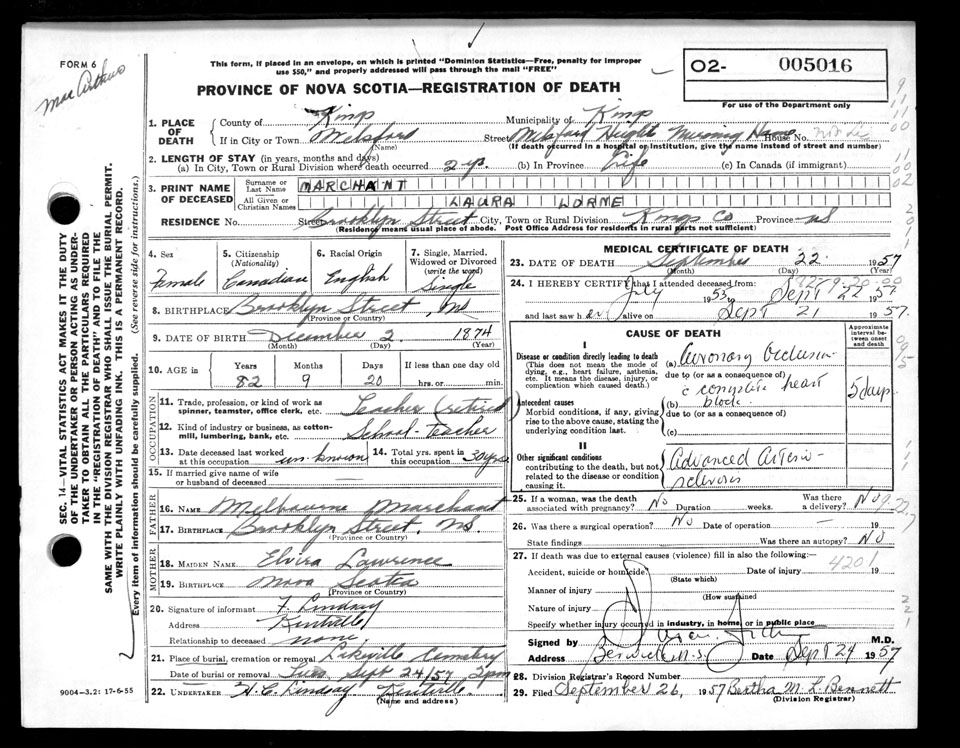 FORM 6
This form, if placed in an envelope, on which is printed "Dominion Statistics—Free, penalty for improper
use $50," and properly addressed will pass through the mail "FREE"
O2- 005016
For use of the Department only
PROVINCE OF NOVA SCOTIA—REGISTRATION OF DEATH
1. PLACE OF DEATH
County of Kings Municipality of Kings
If in City or Town Melsford Street Melsford Height Nursing Home House No.
(Name) (If death occurred in a hospital or institution, give the name instead of street and number)
2. LENGTH OF STAY (in years, months and days)
(a) In City, Town or Rural Division where death occurred 2 yr. (b) In Province Life (c) In Canada (if immigrant)
3. PRINT NAME OF DECEASED
Surname or Last Name MARCHANT
All Given or Christian Names LAURA LORNE
RESIDENCE No. Street Brooklyn Street City, Town or Rural Division Kings Co Province NS
(Residence means usual place of abode. Post Office Address for residents in rural parts not sufficient)
4. Sex
Female
5. Citizenship
(Nationality)
Canadian
6. Racial Origin
English
7. Single, Married,
Widowed or Divorced
(write the word)
Single
8. BIRTHPLACE Brooklyn Street, NS
(Province or Country)
9. DATE OF BIRTH December 2 1874
(Month) (Day) (Year)
10. AGE in
Years Months Days If less than one day old
82 9 20 hrs. or min.
OCCUPATION
11. Trade, profession, or kind of work as
spinner, teamster, office clerk, etc. Teacher (retired)
12. Kind of industry or business, as cotton-
mill, lumbering, bank, etc. School-teacher
13. Date deceased last worked
at this occupation unknown
14. Total yrs. spent in
this occupation 30 yrs
15. If married give name of wife
or husband of deceased —
FATHER
16. NAME Melbourne Marchant
17. BIRTHPLACE Brooklyn Street, NS
(Province or Country)
MOTHER
18. MAIDEN NAME Elvira Lawrence
19. BIRTHPLACE Nova Scotia
(Province or Country)
20. Signature of informant F. Lindsay
Address Kentville
Relationship to deceased none
21. Place of burial, cremation or removal Lakeville Cemetery
Date of burial or removal Tues Sept 24/57 2 pm
22. UNDERTAKER H. C. Lindsay Kentville
(Name and address)
MEDICAL CERTIFICATE OF DEATH
23. DATE OF DEATH September 22 1957
(Month) (Day) (Year)
24. I HEREBY CERTIFY that I attended deceased from
July 1953 to Sept 22 1957
and last saw her alive on Sept 21 1957.
CAUSE OF DEATH
Approximate
interval be-
tween onset
and death
I
Disease or condition directly leading to death
(This does not mean the mode of
dying, e.g., heart failure, asthenia,
etc. It means the disease, injury, or
complication which caused death.)
(a) Coronary Occlusion
due to (or as a consequence of)
c complete heart
block
5 days
Antecedent causes
Morbid conditions, if any, giving
rise to the above cause, stating the
underlying condition last.
(b)
due to (or as a consequence of)
(c)
II
Other significant conditions
contributing to the death, but not
related to the disease or condition
causing it.
Advanced Arterio-
sclerosis
25. If a woman, was the death
associated with pregnancy? No Duration weeks. Was there
a delivery? No
26. Was there a surgical operation? No Date of operation — 19
State findings Was there an autopsy? No
27. If death was due to external causes (violence) fill in also the following:—
4201
Accident, suicide or homicide? Date of injury 19
(State which)
Manner of injury
(How sustained
Nature of injury
Specify whether injury occurred in industry, in home, or in public place
Signed by M.D.
Address Berwick N.S. Date Sept 24 1957
28. Division Registrar's Record Number
29. Filed September 26, 1957 Bertha M. L. Bennett
(Division Registrar)
SEC. 14—VITAL STATISTICS ACT MAKES IT THE DUTY
OF THE UNDERTAKER OR PERSON ACTING AS UNDER-
TAKER TO OBTAIN ALL THE PARTICULARS REQUIRED
IN THE "REGISTRATION OF DEATH" AND TO FILE THE
SAME WITH THE DIVISION REGISTRAR WHO SHALL ISSUE THE BURIAL PERMIT.
WRITE PLAINLY WITH UNFADING INK. THIS IS A PERMANENT RECORD.
Every item of information should be carefully supplied. (See reverse side for instructions.)
9004-3.2: 17-6-55